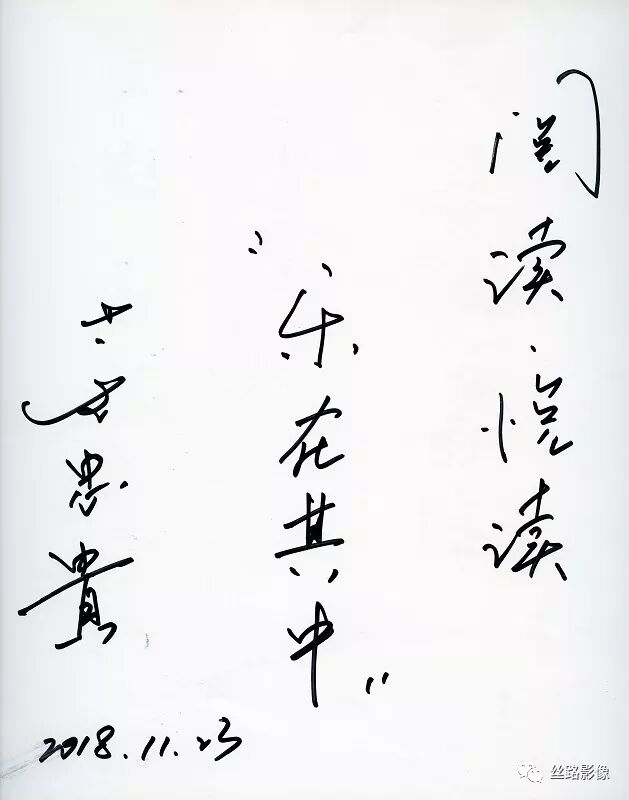 阅读·悦读
“乐在其中”
忠貴
2018.11.23
丝路影像